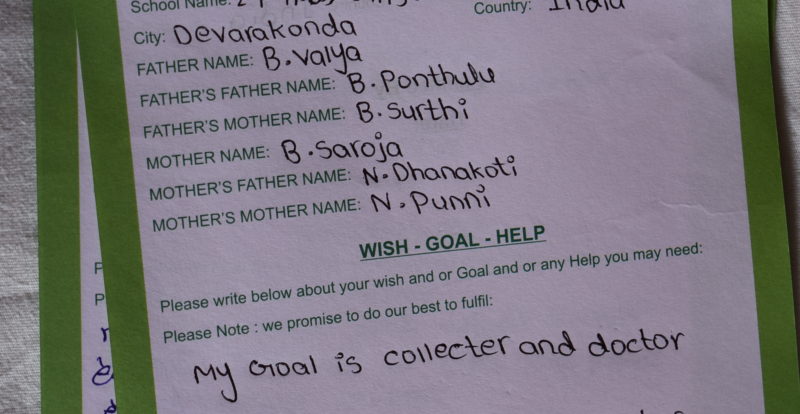 School Name:
Country: India
City: Devarakonda
FATHER NAME: B. Valya
FATHER'S FATHER NAME: B. Ponthulu
FATHER'S MOTHER NAME: B. Surthi
MOTHER NAME: B. Saroja
MOTHER'S FATHER NAME: N. Dhanakoti
MOTHER'S MOTHER NAME: N. Punni
WISH - GOAL - HELP
Please write below about your wish and or Goal and or any Help you may need:
Please Note : we promise to do our best to fulfil:
My Goal is collecter and doctor